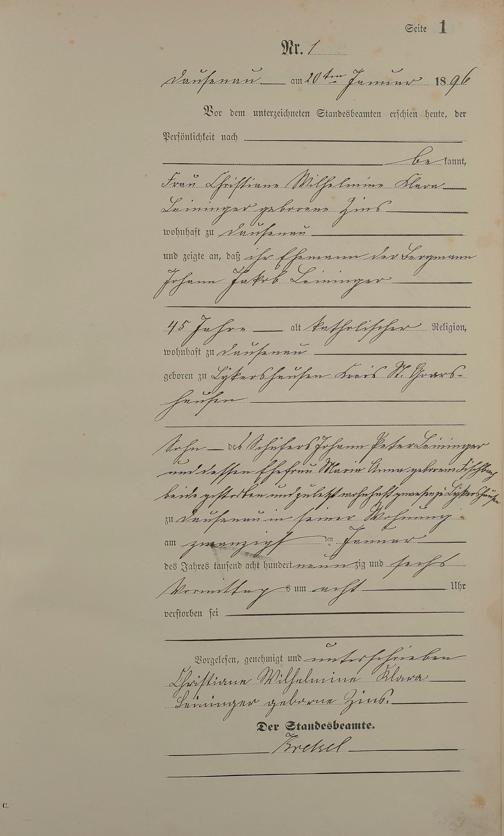 Seite 1
Nr. 1
Dausenau am 20ten Januar 1896
Vor dem unterzeichneten Standesbeamten erschien heute, der
Persönlichkeit nach
be kannt,
Frau Christiane Wilhelmine Klara
Leininger geborene Zins
wohnhaft zu Dausenau
und zeigte an, daß ihr Ehemann der Bergmann
Johann Jakob Leininger
45 Jahre alt katholischer Religion,
wohnhaft zu Dausenau
geboren zu Lykershausen Kreis St. Goars-
hausen
Sohn des Schäfers Johann Peter Leininger
und dessen Ehefrau Maria Anna geborene
beide gestorben und zuletzt wohnhaft gewesen zu Lykershausen
zu Dausenau in seiner Wohnung
am zwanzigsten Januar
des Jahres tausend acht hundert neunzig und sechs
Vormittags um acht Uhr
verstorben sei
Vorgelesen, genehmigt und unterschrieben
Christiane Wilhelmine Klara
Leininger geborne Zins.
Der Standesbeamte.
C.